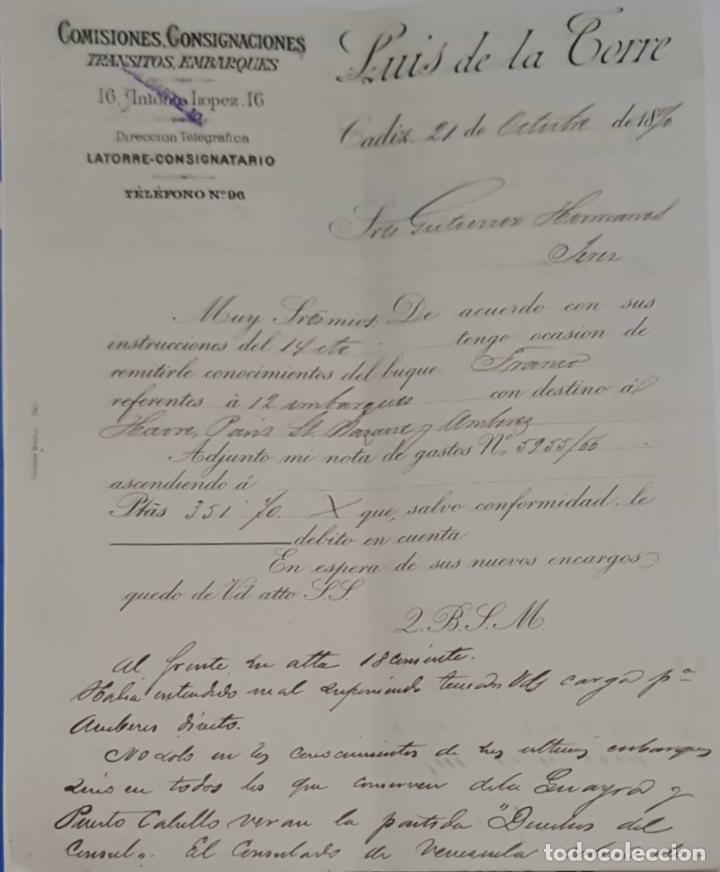 COMISIONES, CONSIGNACIONES
TRÁNSITOS, EMBARQUES
16, Antonio Lopez, 16
Direccion Telegráfica
LATORRE-CONSIGNATARIO
TÉLÉFONO Nº 96
Luis de la Torre
Cadiz, 21 de Octubre de 18
Sres Gutierrez Hermanos
Jerez
Muy Sres mios: De acuerdo con sus
instrucciones del 14 cte tengo ocasion de
remitirle conocimientos del buque Franco
referentes á 12 embarques con destino á
Havre, Paris, St. Nazaire y Amberes
Adjunto mi nota de gastos Nº 5955/66
ascendiendo á
Ptas 351 70 X que, salvo conformidad, le
debito en cuenta
En espera de sus nuevos encargos
quedo de Vd atto S.S.
Q.B.S.M.
Al frente su atta 18 corriente.
Habia entendido mal suponiendo tenian Vds carga pª
Amberes directo.
No solo en los conocimientos de los ultimos embarques
sino en todos los que conserven de la Guayra y
Puerto Cabello veran la partida "Derechos del
Consul". El Consulado de Venezuela
todocoleccion